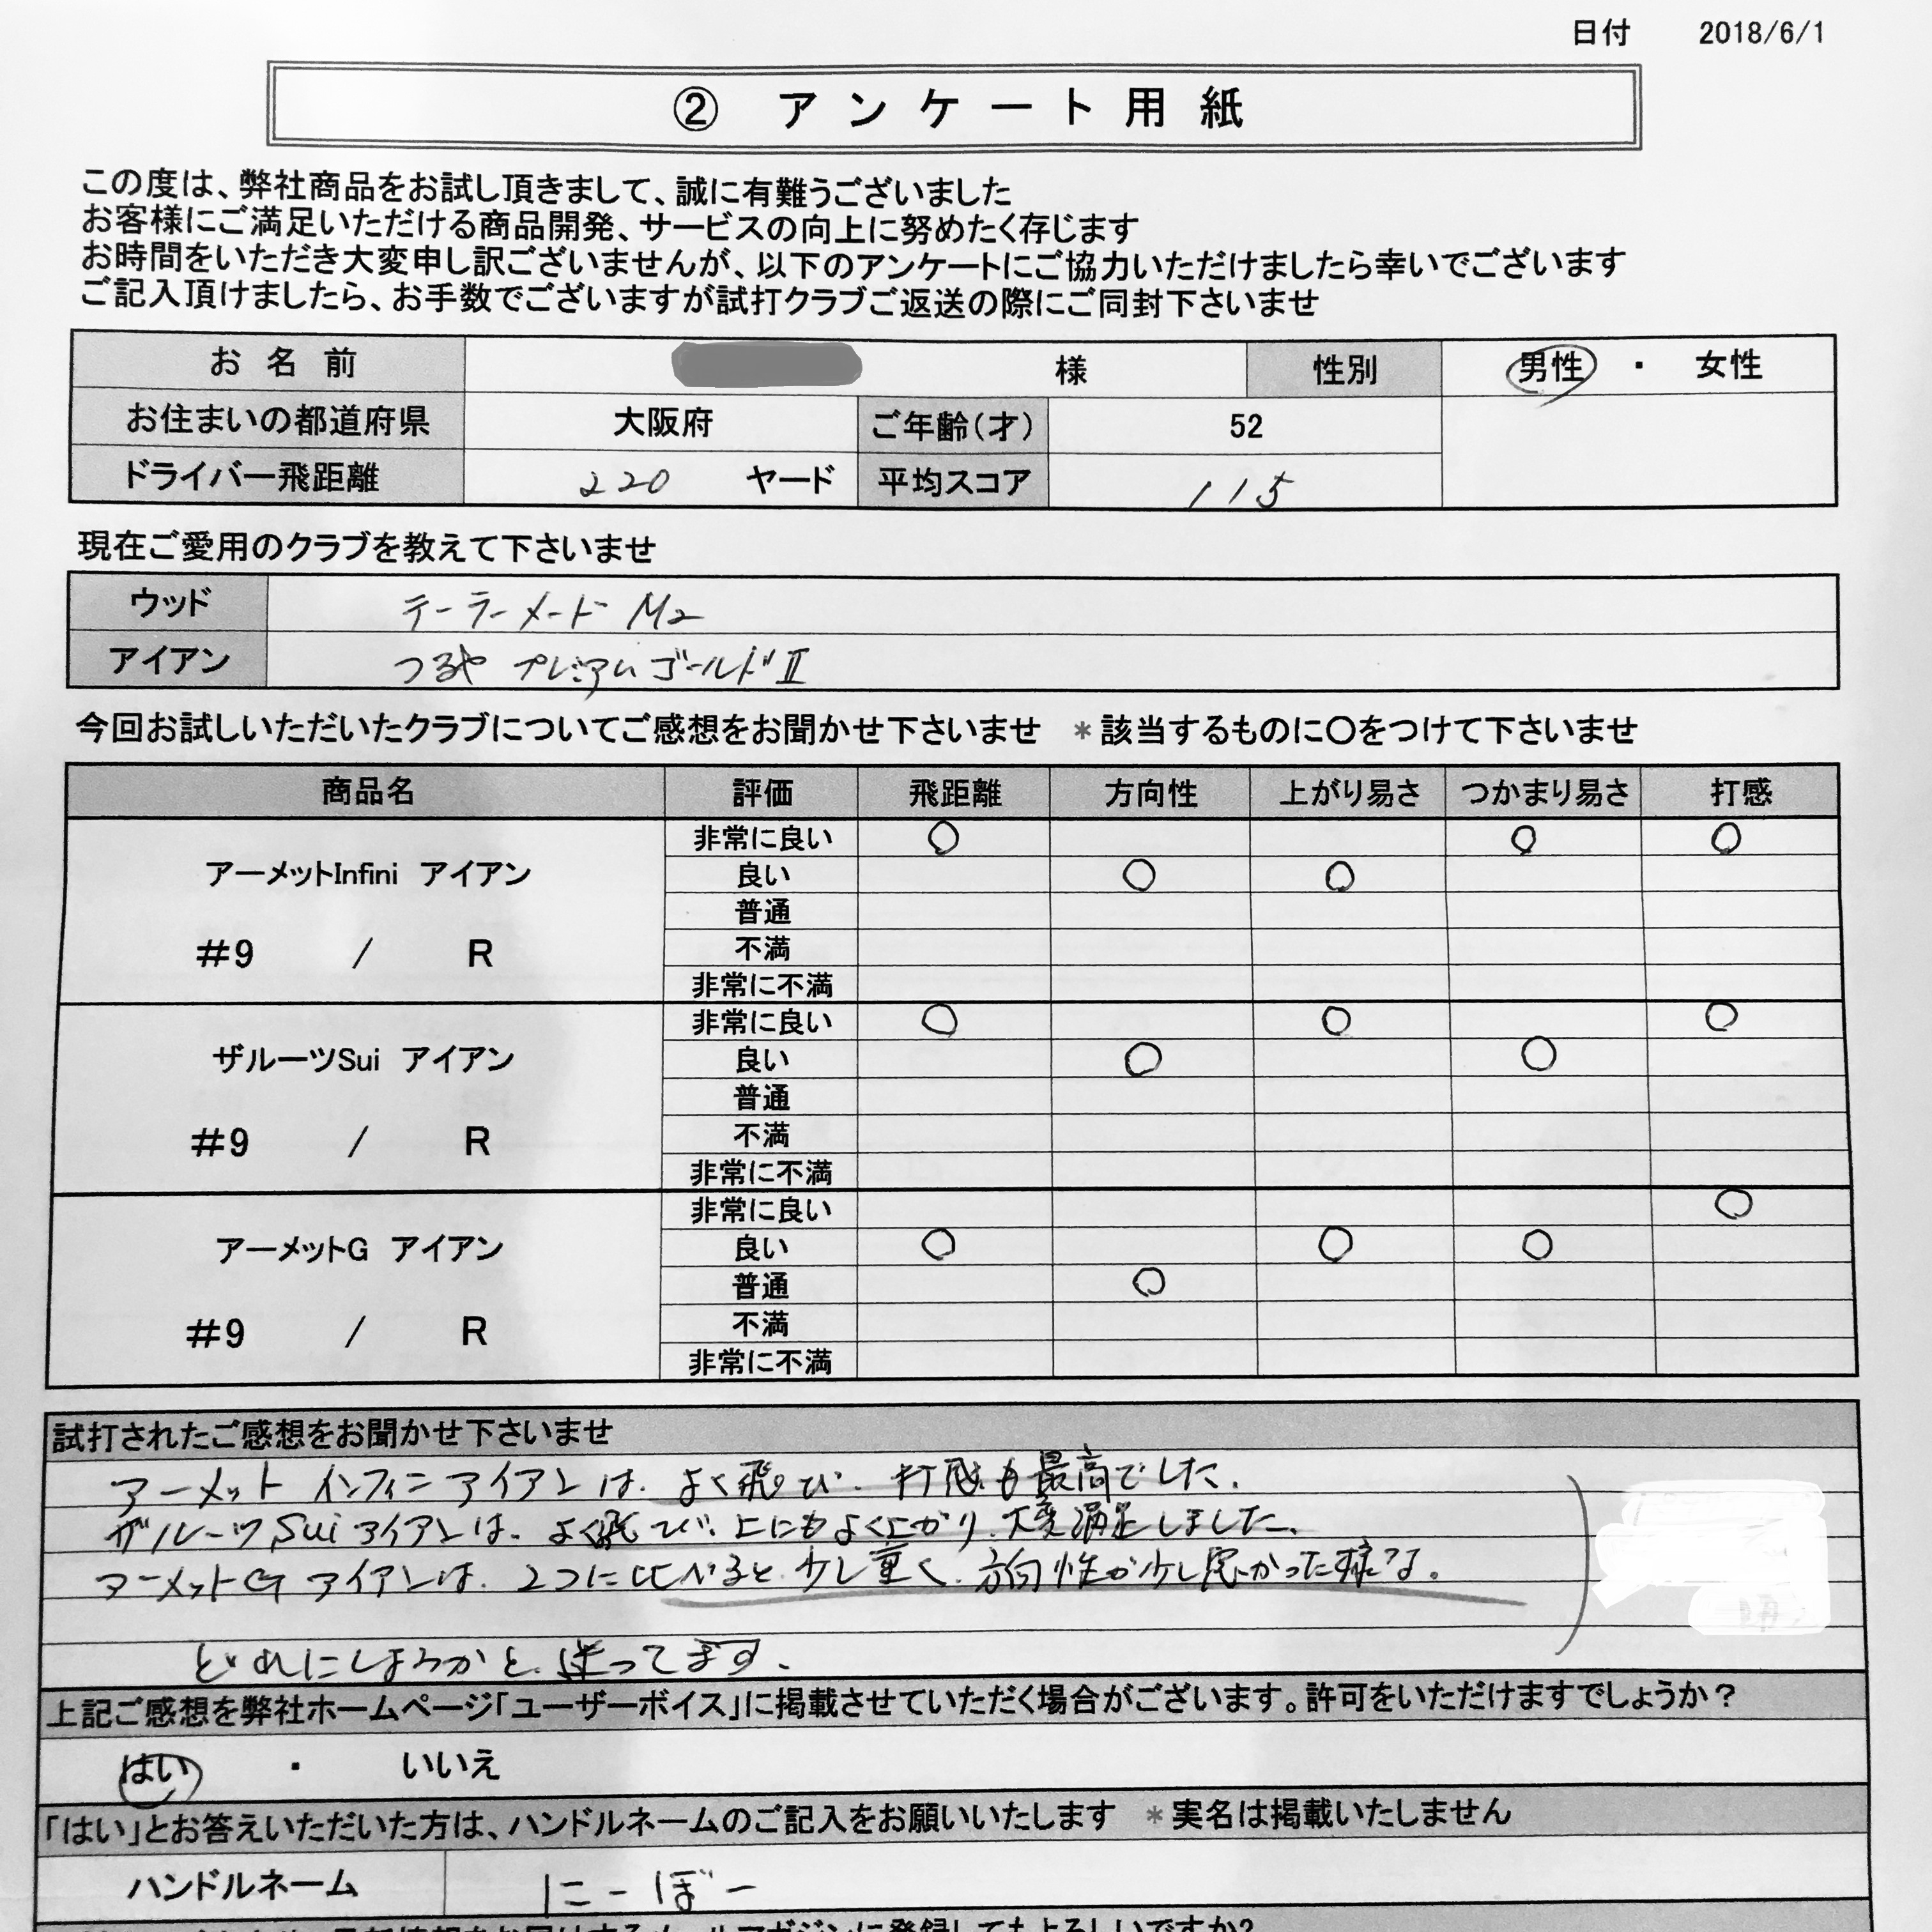 日付 2018/6/1
② アンケート用紙
この度は、弊社商品をお試し頂きまして、誠に有難うございました
お客様にご満足いただける商品開発、サービスの向上に努めたく存じます
お時間をいただき大変申し訳ございませんが、以下のアンケートにご協力いただけましたら幸いでございます
ご記入頂けましたら、お手数でございますが試打クラブご返送の際にご同封下さいませ
お名前 様 性別 男性 ・ 女性
お住まいの都道府県 大阪府 ご年齢(才) 52
ドライバー飛距離 220 ヤード 平均スコア 115
現在ご愛用のクラブを教えて下さいませ
ウッド テーラーメード M2
アイアン つるや プレミアム ゴールドⅡ
今回お試しいただいたクラブについてご感想をお聞かせ下さいませ *該当するものに〇をつけて下さいませ
商品名 評価 飛距離 方向性 上がり易さ つかまり易さ 打感
アーメットInfini アイアン
#9 / R
非常に良い 〇 〇 〇
良い 〇 〇
普通
不満
非常に不満
ザルーツSui アイアン
#9 / R
非常に良い 〇 〇 〇
良い 〇 〇
普通
不満
非常に不満
アーメットG アイアン
#9 / R
非常に良い 〇
良い 〇 〇 〇
普通 〇
不満
非常に不満
試打されたご感想をお聞かせ下さいませ
アーメット インフィニ アイアンは、よく飛び、打感も最高でした。
ザルーツSui アイアンは、よく飛び、上にもよく上がり、大変満足しました。
アーメットG アイアンは、2つに比べると、少し重く、方向性が少し悪かった様な。
どれにしようかと、迷ってます。
上記ご感想を弊社ホームページ「ユーザーボイス」に掲載させていただく場合がございます。許可をいただけますでしょうか？
はい ・ いいえ
「はい」とお答えいただいた方は、ハンドルネームのご記入をお願いいたします *実名は掲載いたしません
ハンドルネーム にーぼー